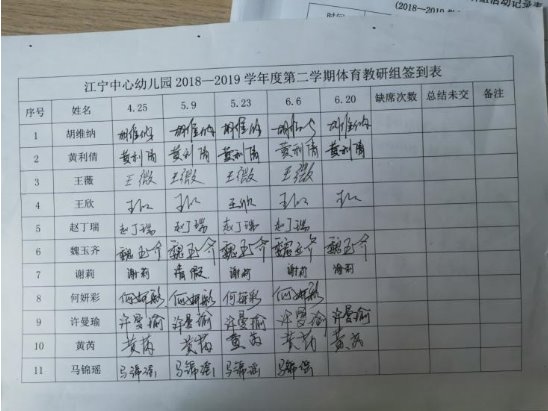 活动记录表
时间
(2018—2019
江宁中心幼儿园 2018—2019 学年度第二学期体育教研组签到表
序号 姓名 4.25 5.9 5.23 6.6 6.20 缺席次数 总结未交 备注
1 胡维纳 胡维纳 胡维纳 胡维纳 胡维纳 胡维纳
2 黄利倩 黄利倩 黄利倩 黄利倩 黄利倩 黄利倩
3 王薇 王薇 王薇 王薇 王薇
4 王欣 王欣
5 赵丁瑞 赵丁瑞 赵丁瑞 赵丁瑞 赵丁瑞
6 魏玉齐 魏玉齐 魏玉齐 魏玉齐 魏玉齐 魏玉齐
7 谢莉 谢莉 请假 谢莉 谢莉 谢莉
8 何妍彩 何妍彩 何妍彩 何妍彩 何妍彩
9 许曼瑜 许曼瑜 许曼瑜 许曼瑜 许曼瑜 许曼瑜
10 黄芮 黄芮 黄芮 黄芮 黄芮
11 马锦瑶 马锦瑶 马锦瑶 马锦瑶 马锦瑶